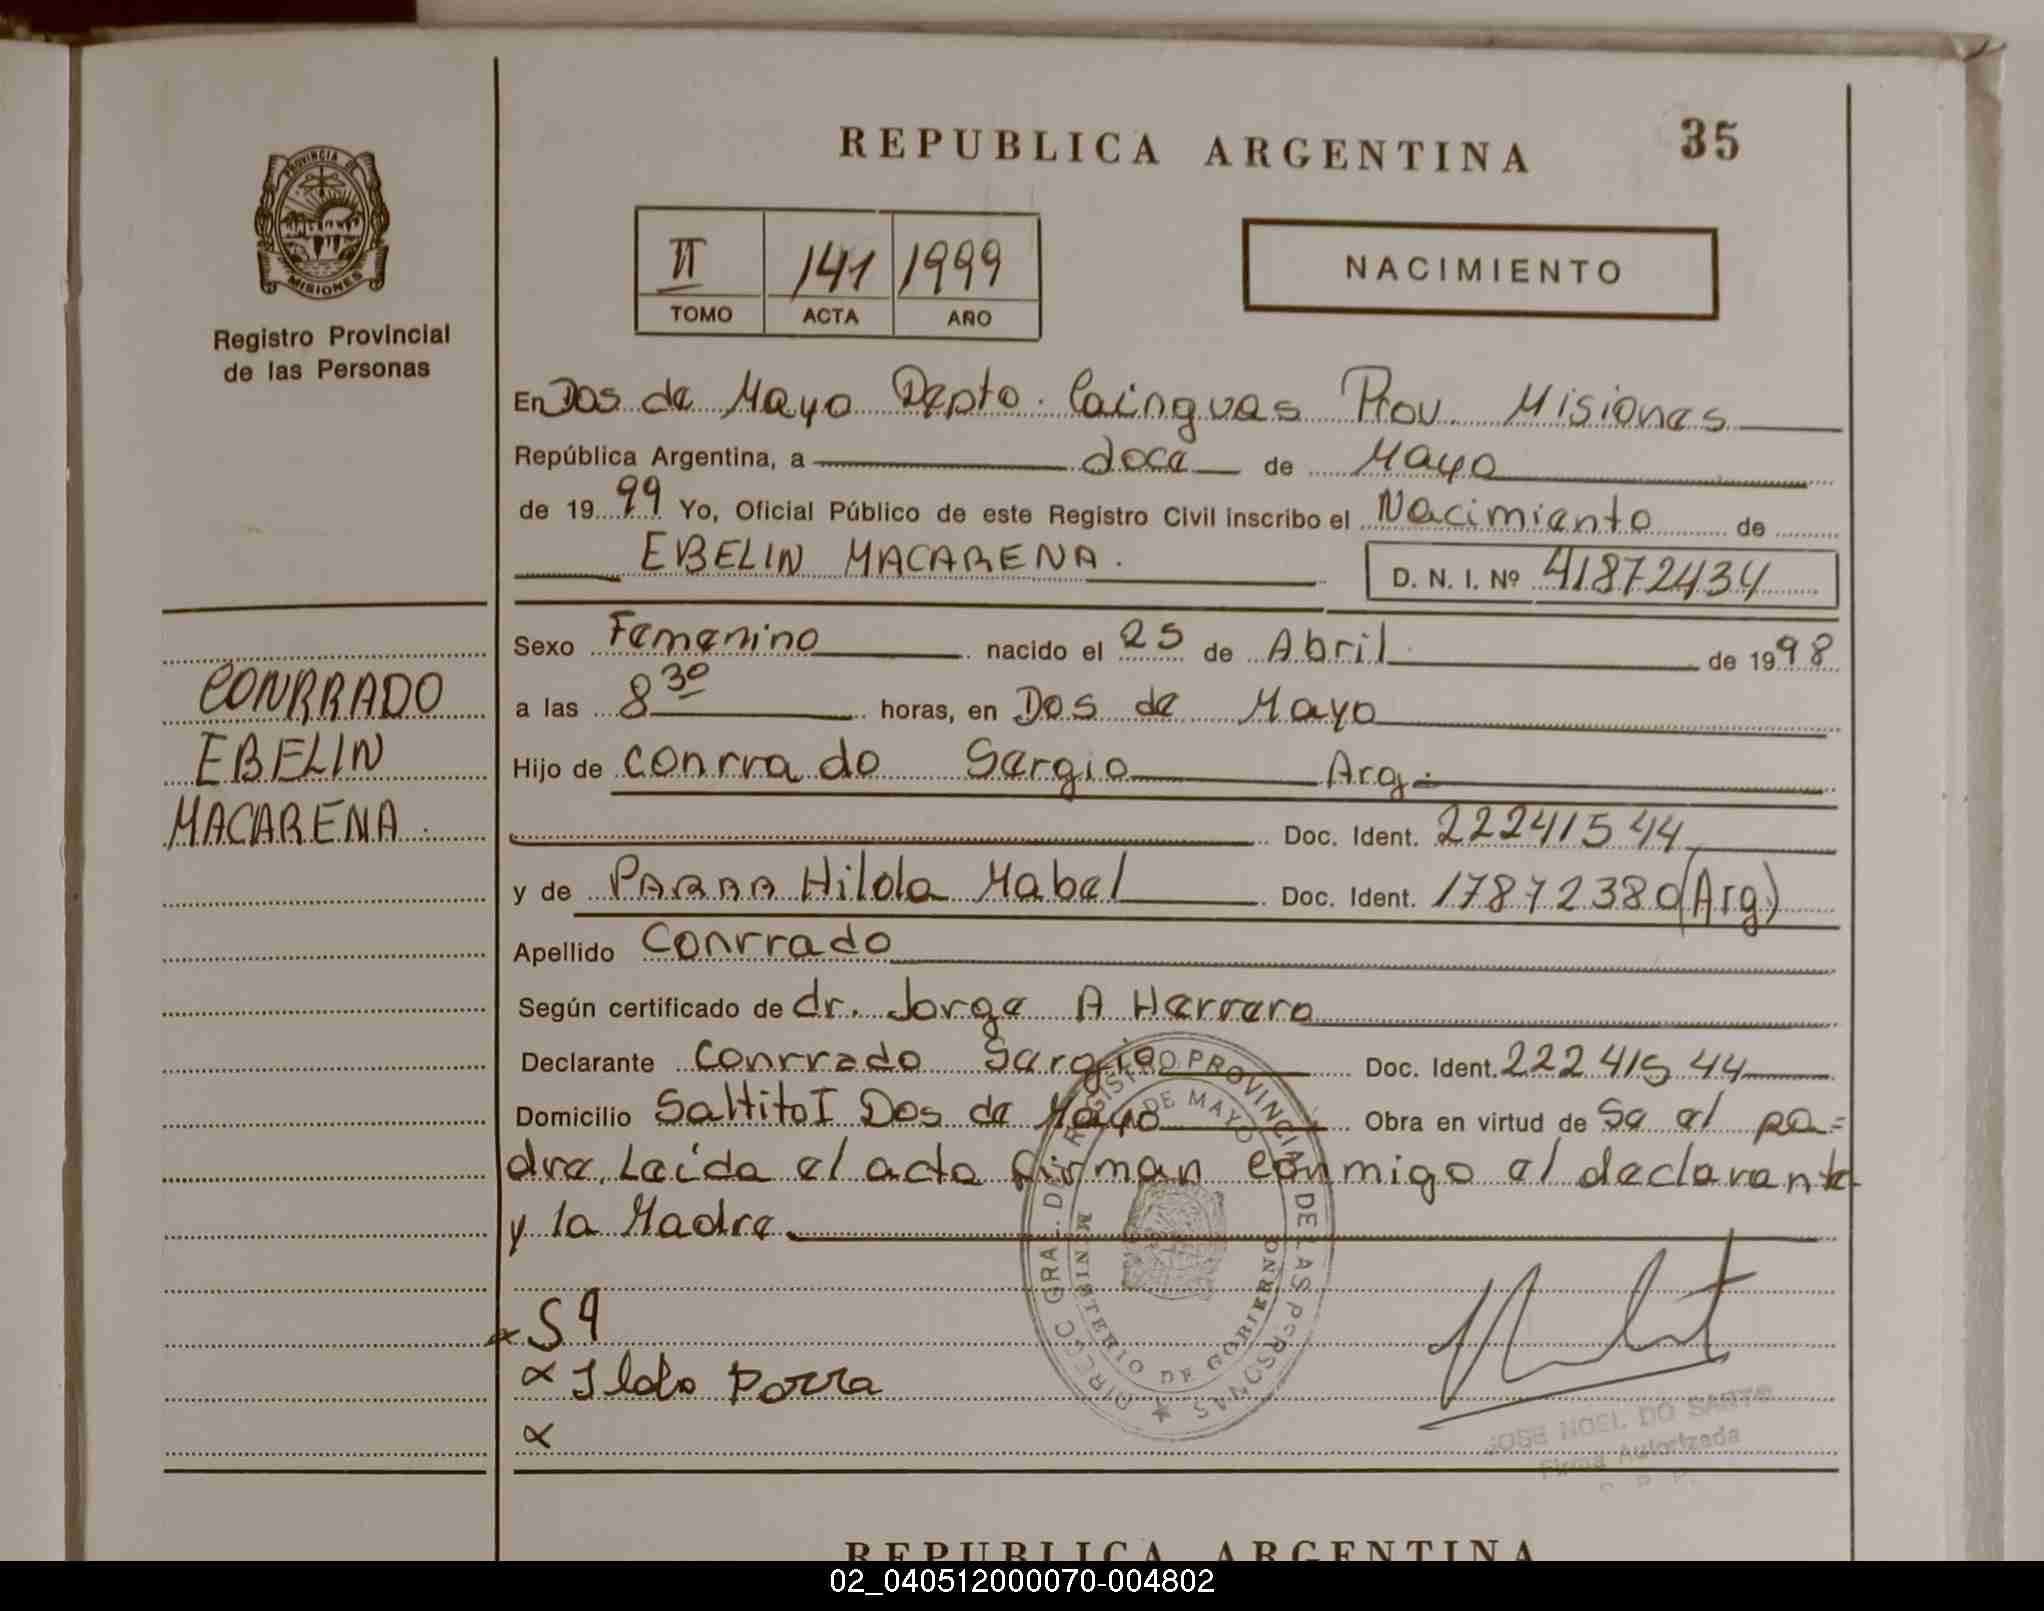 REPUBLICA ARGENTINA 35
PROVINCIA DE
MISIONES
Registro Provincial
de las Personas
II 141 1999
TOMO ACTA AÑO
NACIMIENTO
En Dos de Mayo Depto. Cainguas Prov. Misiones
República Argentina, a doce de Mayo
de 1999 Yo, Oficial Público de este Registro Civil inscribo el Nacimiento de
EBELIN MACARENA. D. N. I. Nº 41872434
CONRRADO
EBELIN
MACARENA.
Sexo Femenino nacido el 25 de Abril de 1998
a las 8 30 horas, en Dos de Mayo
Hijo de Conrrado Sergio Arg.
Doc. Ident. 22241544
y de PARRA Hilda Mabel Doc. Ident. 17872380 (Arg)
Apellido Conrrado
Según certificado de dr. Jorge A Herrera
Declarante Conrrado Sergio Doc. Ident. 22241544
Domicilio Saltito I Dos de Mayo Obra en virtud de Se el pa=
dre. Leída el acta firman conmigo el declarante
y la Madre.
DIRECC GRAL. DEL REGISTRO PROVINCIAL DE LAS PERSONAS
DOS DE MAYO
MINISTERIO DE GOBIERNO
Ilda Parra
JOSE NOEL DO SANTO
Firma Autorizada
REPUBLICA ARGENTINA
02_040512000070-004802